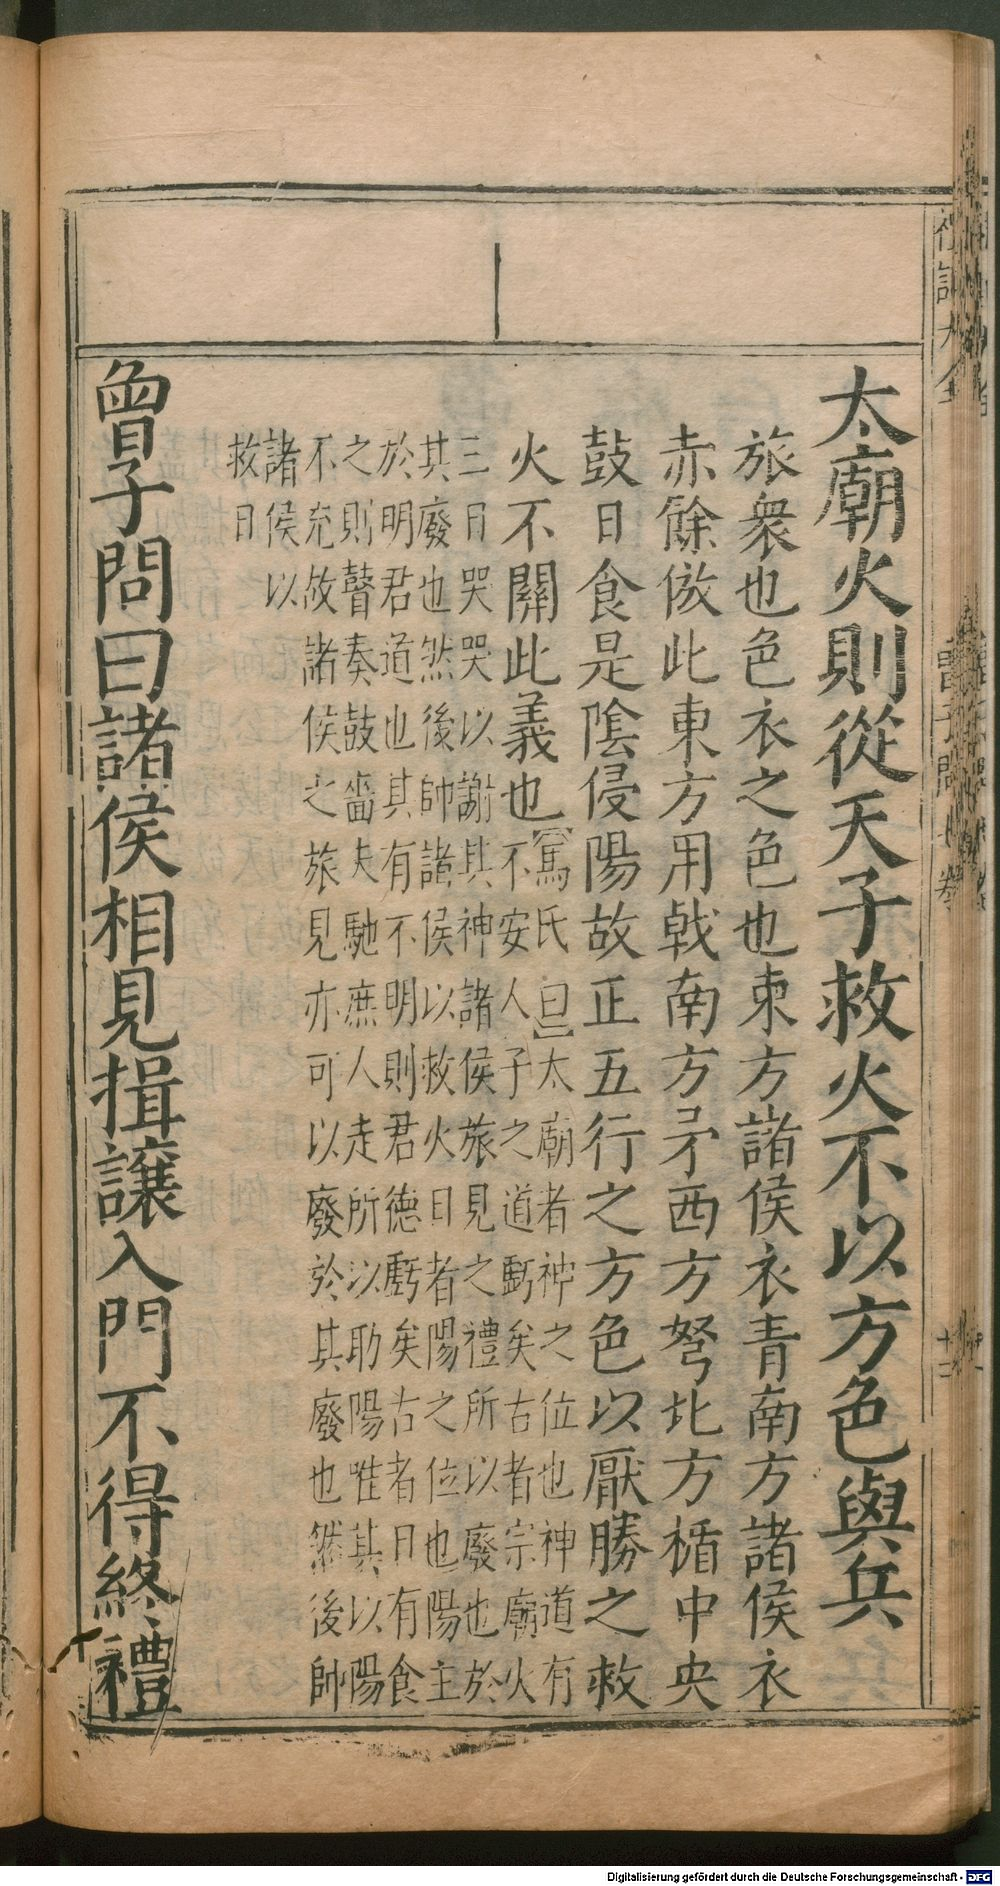 太廟火則從天子救火不以方色與兵
旅衆也色衣之色也東方諸侯衣青南方諸侯衣
赤餘倣此東方用戟南方矛西方弩北方楯中央
鼓日食是陰侵陽故正五行之方色以厭勝之救
火不關此義也
【馬氏曰】太廟者神之位也神道有
不安人子之道虧矣古者宗廟火
三日哭哭以謝其神諸侯旅見之禮所以廢也於
其廢也然後帥諸侯以救火日者陽之位也陽主
於明君道也其有不明則君德虧矣古者日有食
之則瞽奏鼓嗇夫馳庶人走所以助陽唯其以陽
不充故諸侯之旅見亦可以廢於其廢也然後帥
諸侯以
救日
曾子問曰諸侯相見揖讓入門不得終禮
Digitalisierung gefördert durch die Deutsche Forschungsgemeinschaft - DFG